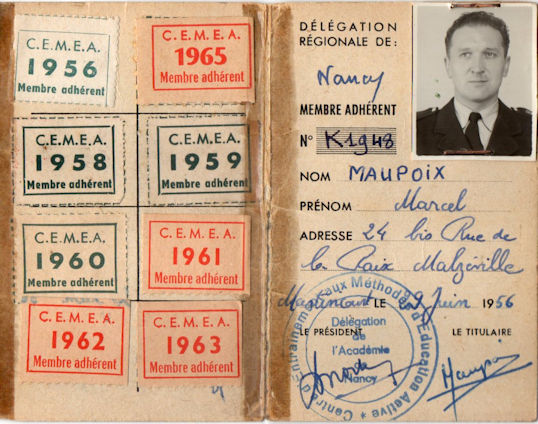 C.E.M.E.A.
1956
Membre adhérent
C.E.M.E.A.
1965
Membre adhérent
C.E.M.E.A.
1958
Membre adhérent
C.E.M.E.A.
1959
Membre adhérent
C.E.M.E.A.
1960
Membre adhérent
C.E.M.E.A.
1961
Membre adhérent
C.E.M.E.A.
1962
Membre adhérent
C.E.M.E.A.
1963
Membre adhérent
DÉLÉGATION
RÉGIONALE DE:
Nancy
MEMBRE ADHÉRENT
N° K1948
NOM MAUPOIX
PRÉNOM Marcel
ADRESSE 24 bis Rue de
la Paix Malzéville
LE Juin 1956
LE PRÉSIDENT LE TITULAIRE
Centre d'Entraînement aux Méthodes d'Education Active
Délégation
de
l'Académie
Nancy
Maupoix